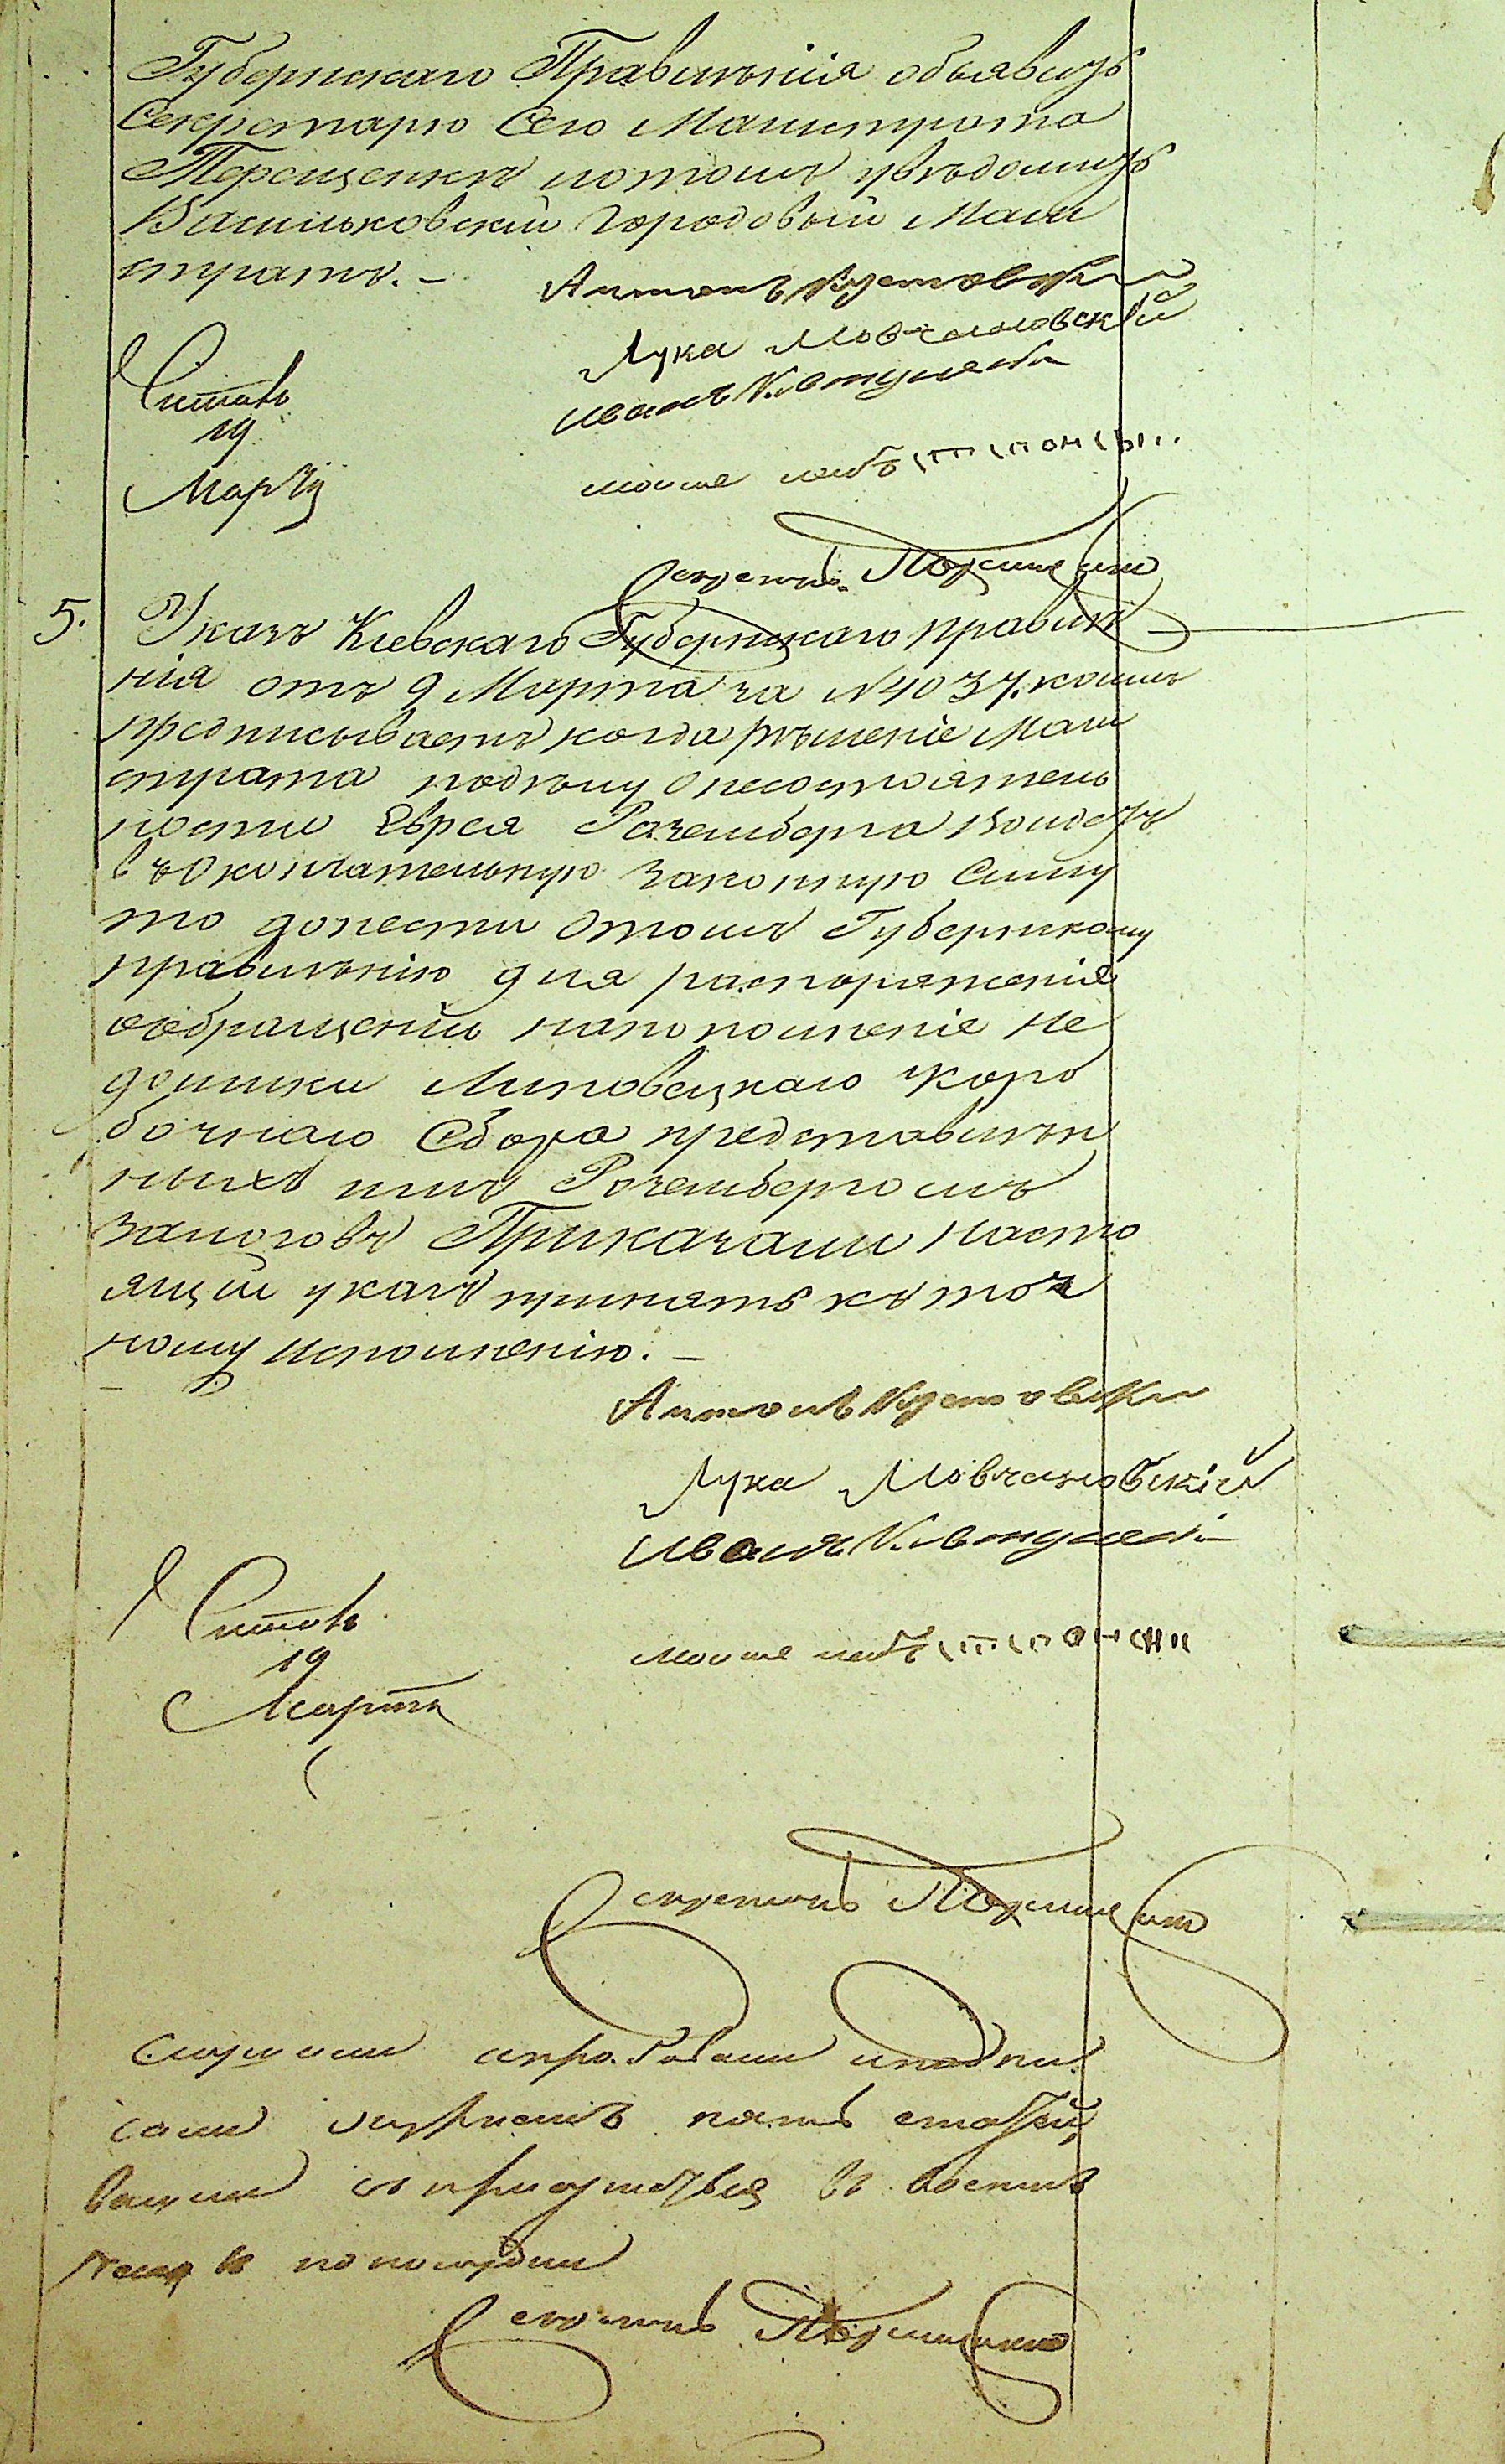 Губернскаго Правленія объявить
Секретарю Сего Магистрата
Терещенкѣ потомъ увѣдомить
Васильковскій Городовый Маги
стратъ. –
Антонъ Кустовскій
Лука Мовчановскій
Иванъ Ковтуненко
Читалъ
19
Марта
мошке лейбъ
Секретарь Терещенко
5. Указъ Кіевскаго Губернскаго правлѣ
нія отъ 9 Марта за N 4037. коимъ
предписываетъ когда рѣшеніе Маги
страта подѣлу о несостоятель
ности Еврея Розенберга войдетъ
въ Окончательную законную Силу
то донести Отомъ Губернскому
правленію для распоряженія
ообращеніи напополненіе не
доимки Липовецкаго Коро
бочнаго Сбора представлен
ныхъ имъ Розенбергомъ
залоговъ Приказали насто
ящій указъ принять къ точ
ному исполненію. –
Антонъ Кустовскій
Лука Мовчановскій
Иванъ Ковтуненко
Читалъ
19
Марта
мошке лейбъ
Секретарь Терещенко
Слушали и подпи
сали журналъ пять статей,
въ присутствія въ восемь
по полудни
Секретарь Терещенко